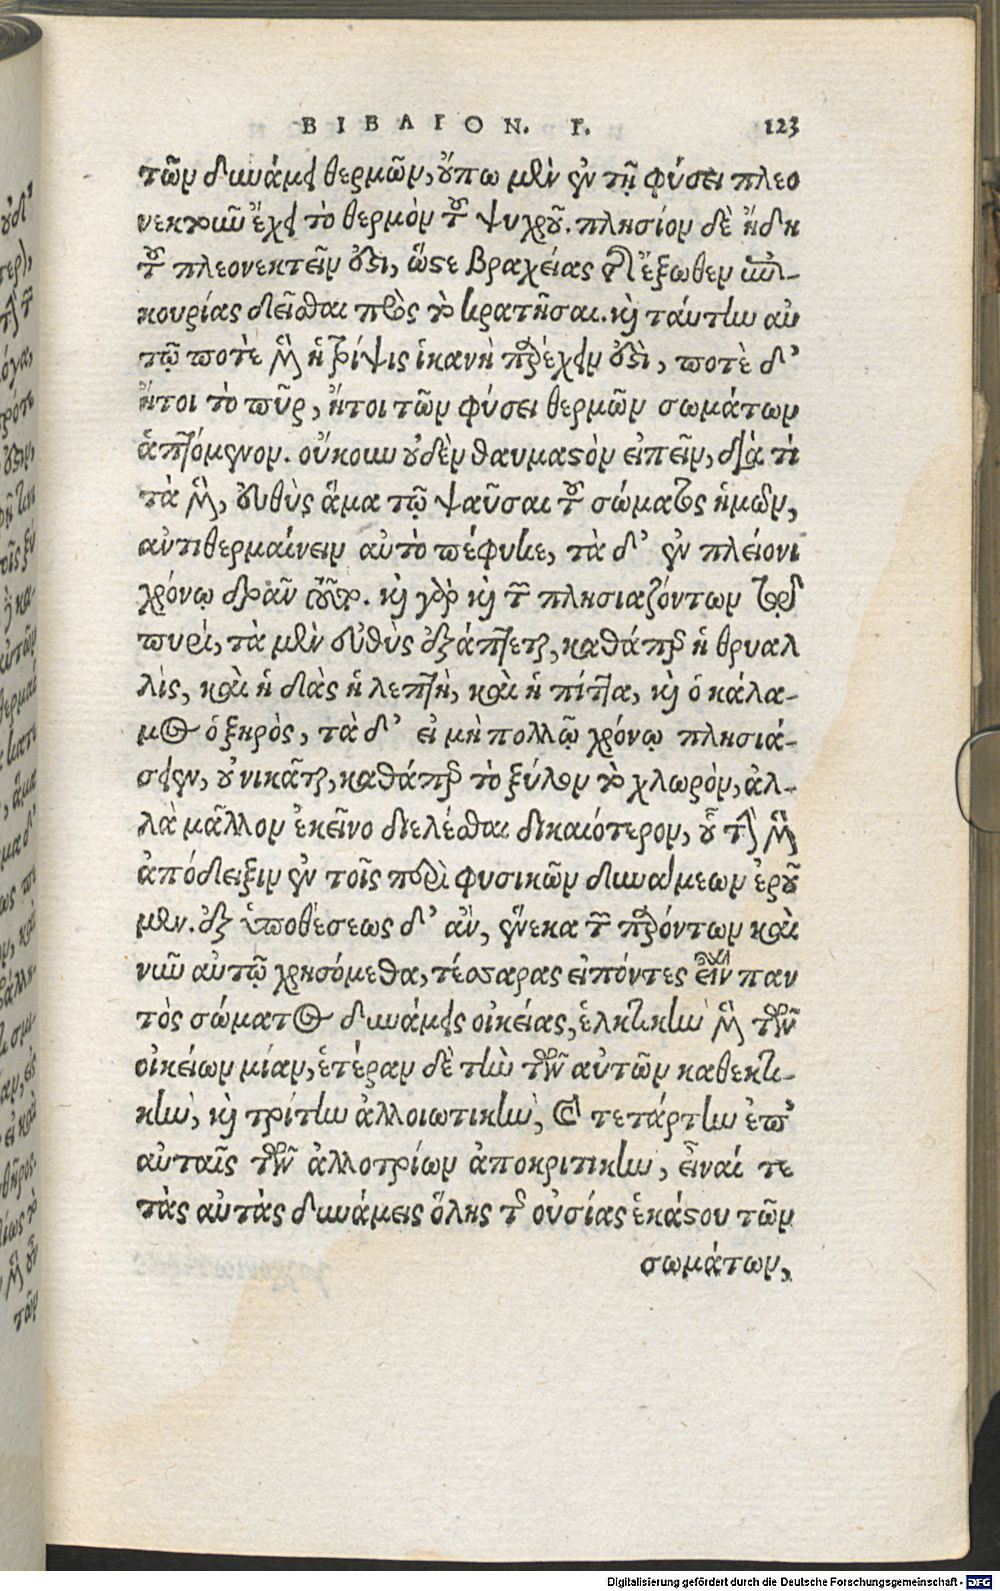 ΒΙΒΛΙΟΝ. Γ. 123
τῶν δυνάμει θερμῶν, οὔπω μὲν ἐν τῇ φύσει πλεο
νεκτοῦν ἔχει τὸ θερμὸν τοῦ ψυχροῦ. πλησίον δὲ ἤδη
τοῦ πλεονεκτεῖν ἐστι, ὥστε βραχείας τῆς ἔξωθεν ἐπι-
κουρίας δεῖσθαι πρὸς τὸ κρατῆσαι. καὶ ταύτην αὐ
τῷ ποτὲ μὲν ἡ τρίψις ἱκανὴ παρέχειν ἐστὶ, ποτὲ δ'
ἤτοι τὸ πῦρ, ἤτοι τῶν φύσει θερμῶν σωμάτων
ἁπτόμενον. οὔκουν οὐδὲν θαυμαστὸν εἰπεῖν, διὰ τί
τὰ μὲν, εὐθὺς ἅμα τῷ ψαῦσαι τοῦ σώματος ἡμῶν,
ἀντιθερμαίνειν αὐτὸ πέφυκε, τὰ δ' ἐν πλείονι
χρόνῳ δρᾶν τοῦτο. καὶ γὰρ καὶ τῶν πλησιαζόντων τῷ
πυρὶ, τὰ μὲν εὐθὺς ἐξάπτεται, καθάπερ ἡ θρυαλ
λὶς, καὶ ἡ δᾲς ἡ λεπτὴ, καὶ ἡ πίττα, καὶ ὁ κάλα-
μος ὁ ξηρὸς, τὰ δ' εἰ μὴ πολλῷ χρόνῳ πλησιά-
σειεν, οὐ νικᾶται, καθάπερ τὸ ξύλον τὸ χλωρὸν, ἀλ-
λὰ μᾶλλον ἐκεῖνο διελέσθαι δικαιότερον, οὗ τὴν μὲν
ἀπόδειξιν ἐν τοῖς περὶ φυσικῶν δυνάμεων ἐροῦ
μεν. ἐξ ὑποθέσεως δ' ἂν, ἕνεκα τῶν παρόντων καὶ
νῦν αὐτῷ χρησόμεθα, τέσσαρας εἰπόντες εἶναι παν
τὸς σώματος δυνάμεις οἰκείας, ἑλκτικὴν μὲν τῶν
οἰκείων μίαν, ἑτέραν δὲ τὴν τῶν αὐτῶν καθεκτι-
κὴν, καὶ τρίτην ἀλλοιωτικὴν, καὶ τετάρτην ἐπ'
αὐταῖς τῶν ἀλλοτρίων ἀποκριτικὴν, εἶναί τε
τὰς αὐτὰς δυνάμεις ὅλης τῆς οὐσίας ἑκάστου τῶν
σωμάτων,
Digitalisierung gefördert durch die Deutsche Forschungsgemeinschaft - DFG